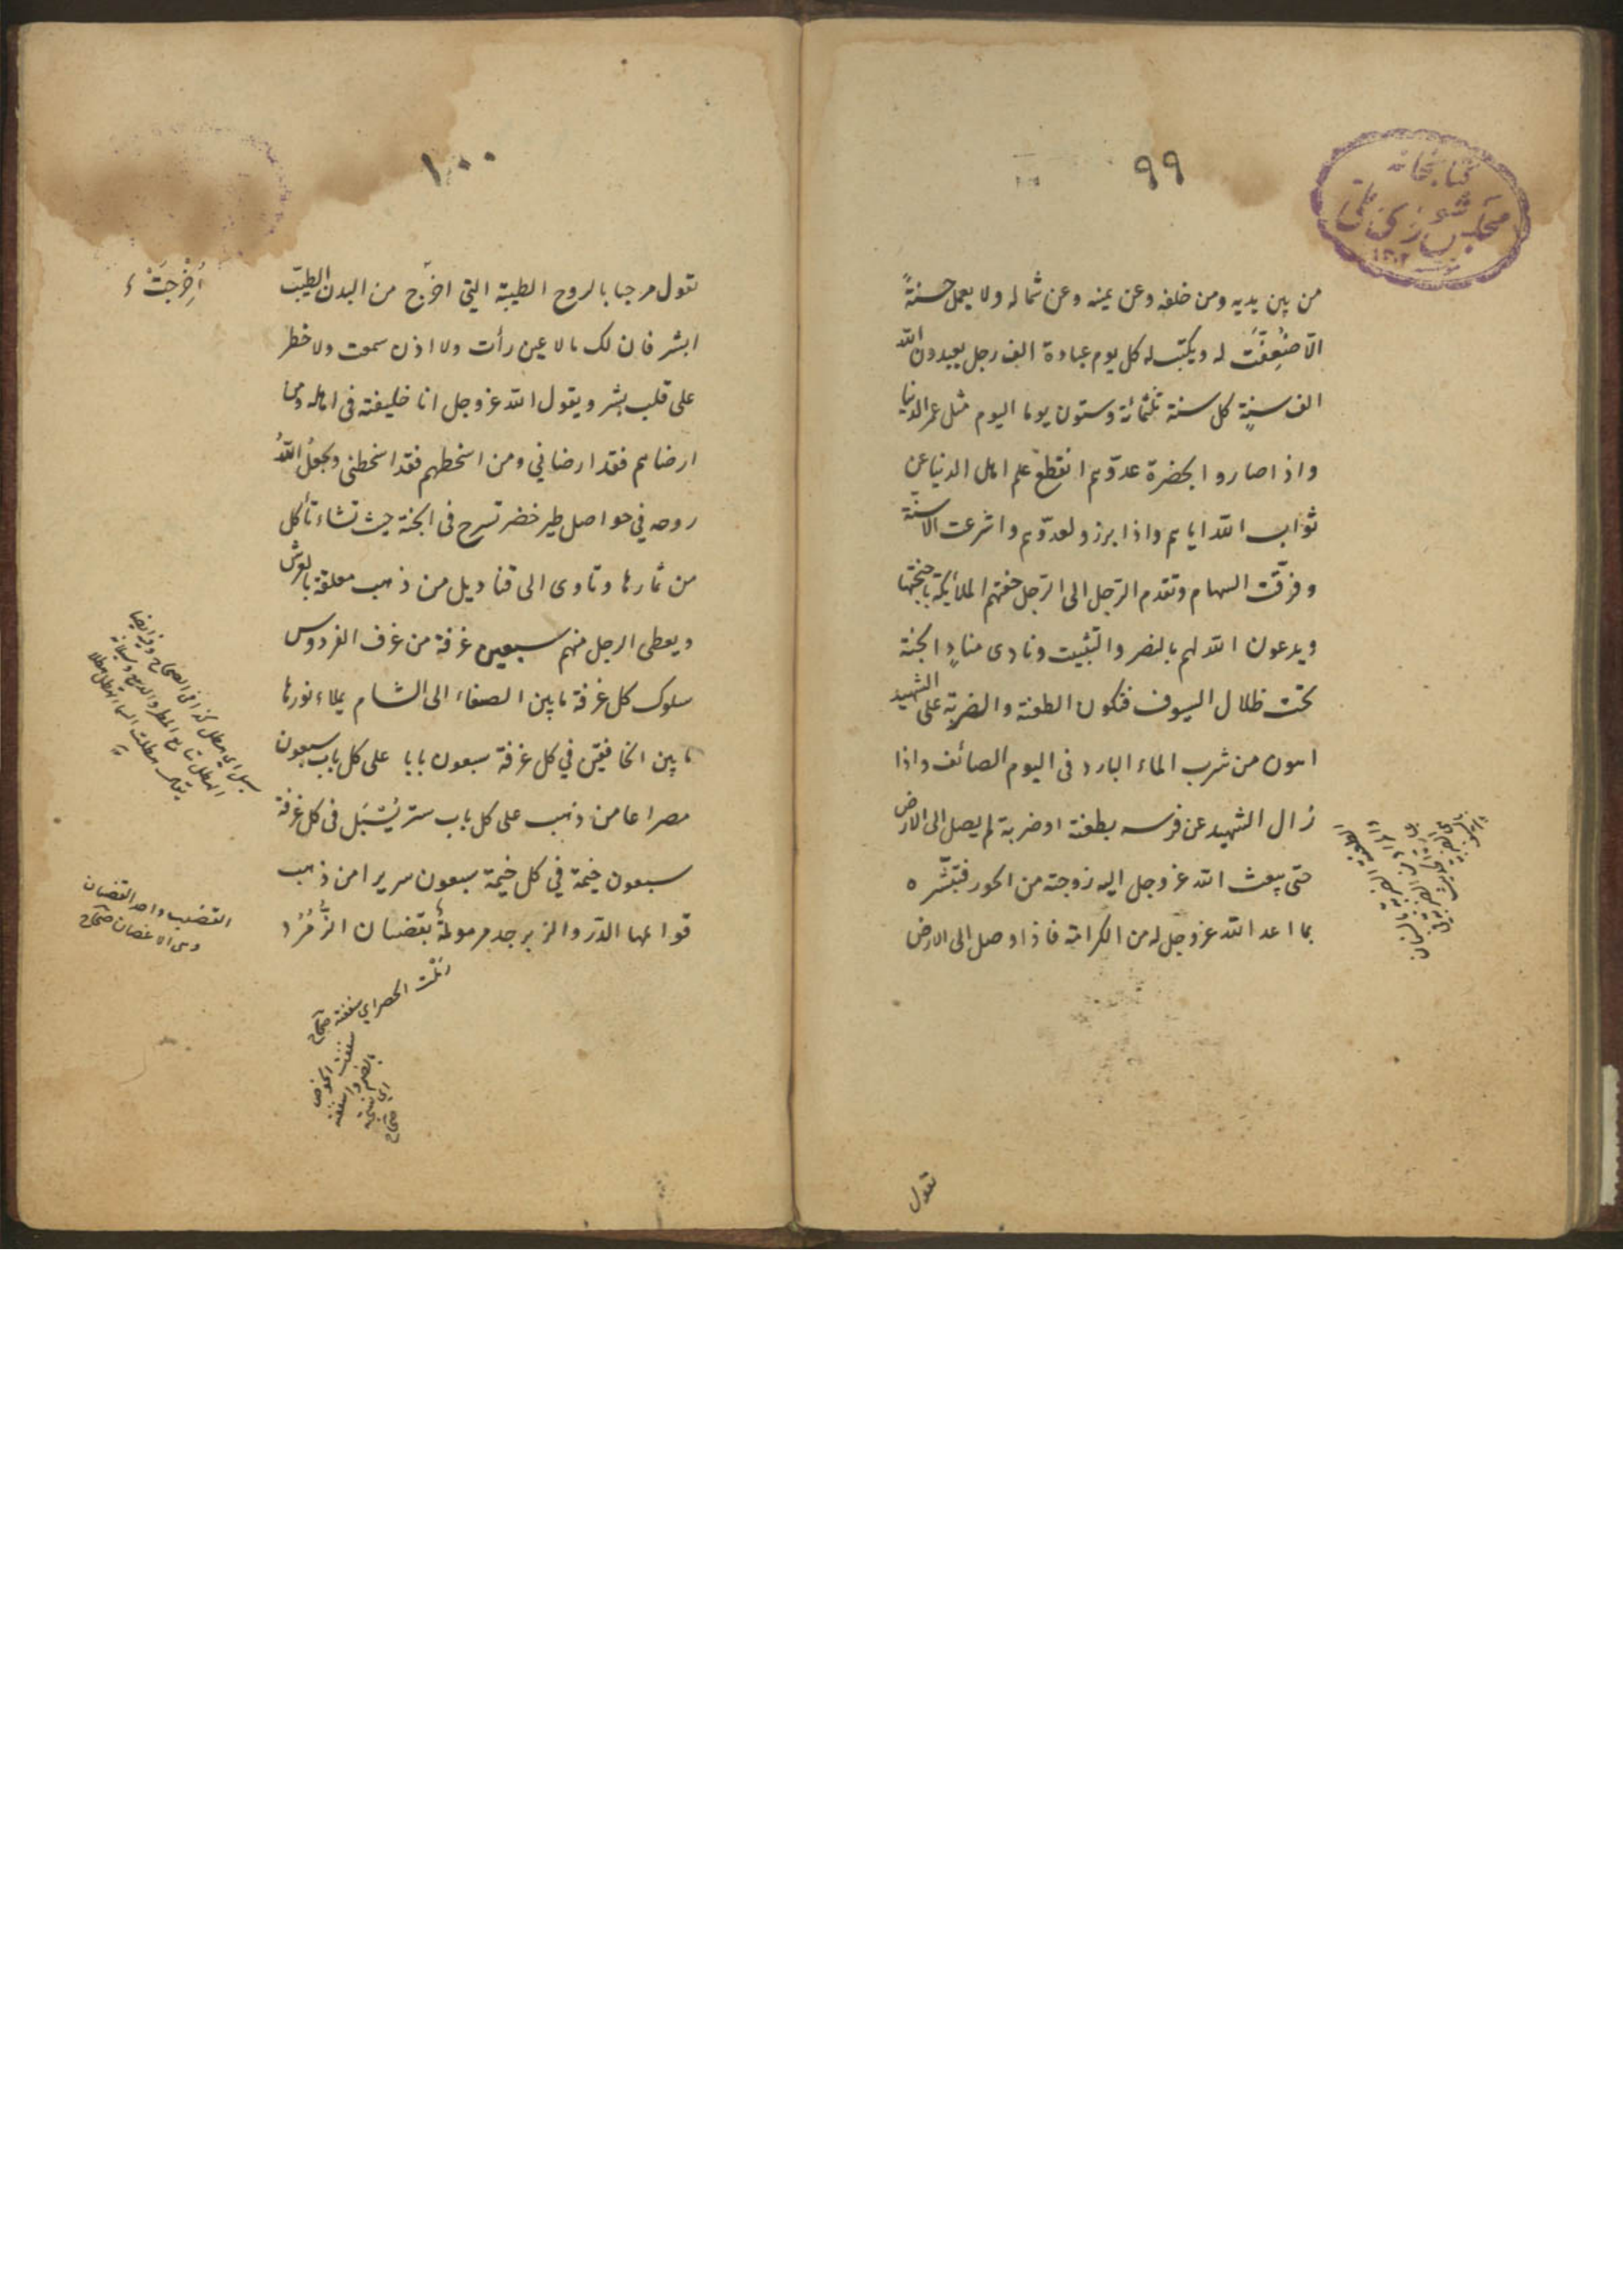 ٩٩
كتابخانه
مجلس شورای ملی
١٣٠٢
من بين يديه ومن خلفه وعن يمينه وعن شماله ولا يعمل حسنةً
الّا ضُعِفَت له ويكتب له كل يوم عبادة الف رجل يعبدون الله
الف سنةٍ كل سنة ثلثمائة وستون يوما اليوم مثل عمر الدنيا
واذا صاروا بحضرة عدوّهم انقطع علم اهل الدنيا عن
ثواب الله اياهم واذا برزوا لعدوّهم واشرعت الاسنّة
وفرقت السهام وتقدم الرّجل الى الرّجل حفتهم الملائكة باجنحتها
ويدعون الله لهم بالنصر والتثبيت ونادى منادٍ الجنة
تحت ظلال السيوف فتكون الطعنة والضربة على الشهيد
اهون من شرب الماء البارد فى اليوم الصائف واذا
زال الشهيد عن فرسه بطعنة او ضربة لم يصل الى الارض
حتى يبعث الله عز وجل اليه زوجته من الحور فتبشّره
بما اعد الله عز وجل له من الكرامة فاذا وصل الى الارض
تقول
١٠٠
تقول مرحبا بالروح الطيبة التي اخرج من البدن الطيّب
أُخْرِجَتْ
ابشر فان لك مالا عين رأت ولا اذن سمعت ولا خطر
على قلب بشر ويقول الله عز وجل انا خليفته فى اهله ومن
ارضاهم فقد ارضاني ومن اسخطهم فقد اسخطنى ويجعل اللهُ
روحه في حواصل طير خضر تسرح فى الجنة حيث تشاء تأكل
من ثمارها وتاوى الى قناديل من ذهب معلقة بالعرش
ويعطى الرجل منهم سبعين غرفة من غرف الفردوس
سلوك كل غرفة ما بين الصنعاء الى الشام يملاء نورها
ما بين الخافقين في كل غرفة سبعون بابا على كل باب سبعون
مصراعا من ذهب على كل باب ستر يُسْبَل فى كل غرفة
سبعون خيمة في كل خيمة سبعون سريرا من ذهب
قوائمها الدّر والزبرجد مرمولة بقضبان الزُّمُرُّد
القضيب واحد القضبان
وهى الاغصان صحاح
رملت الحصر اي سففته صحاح